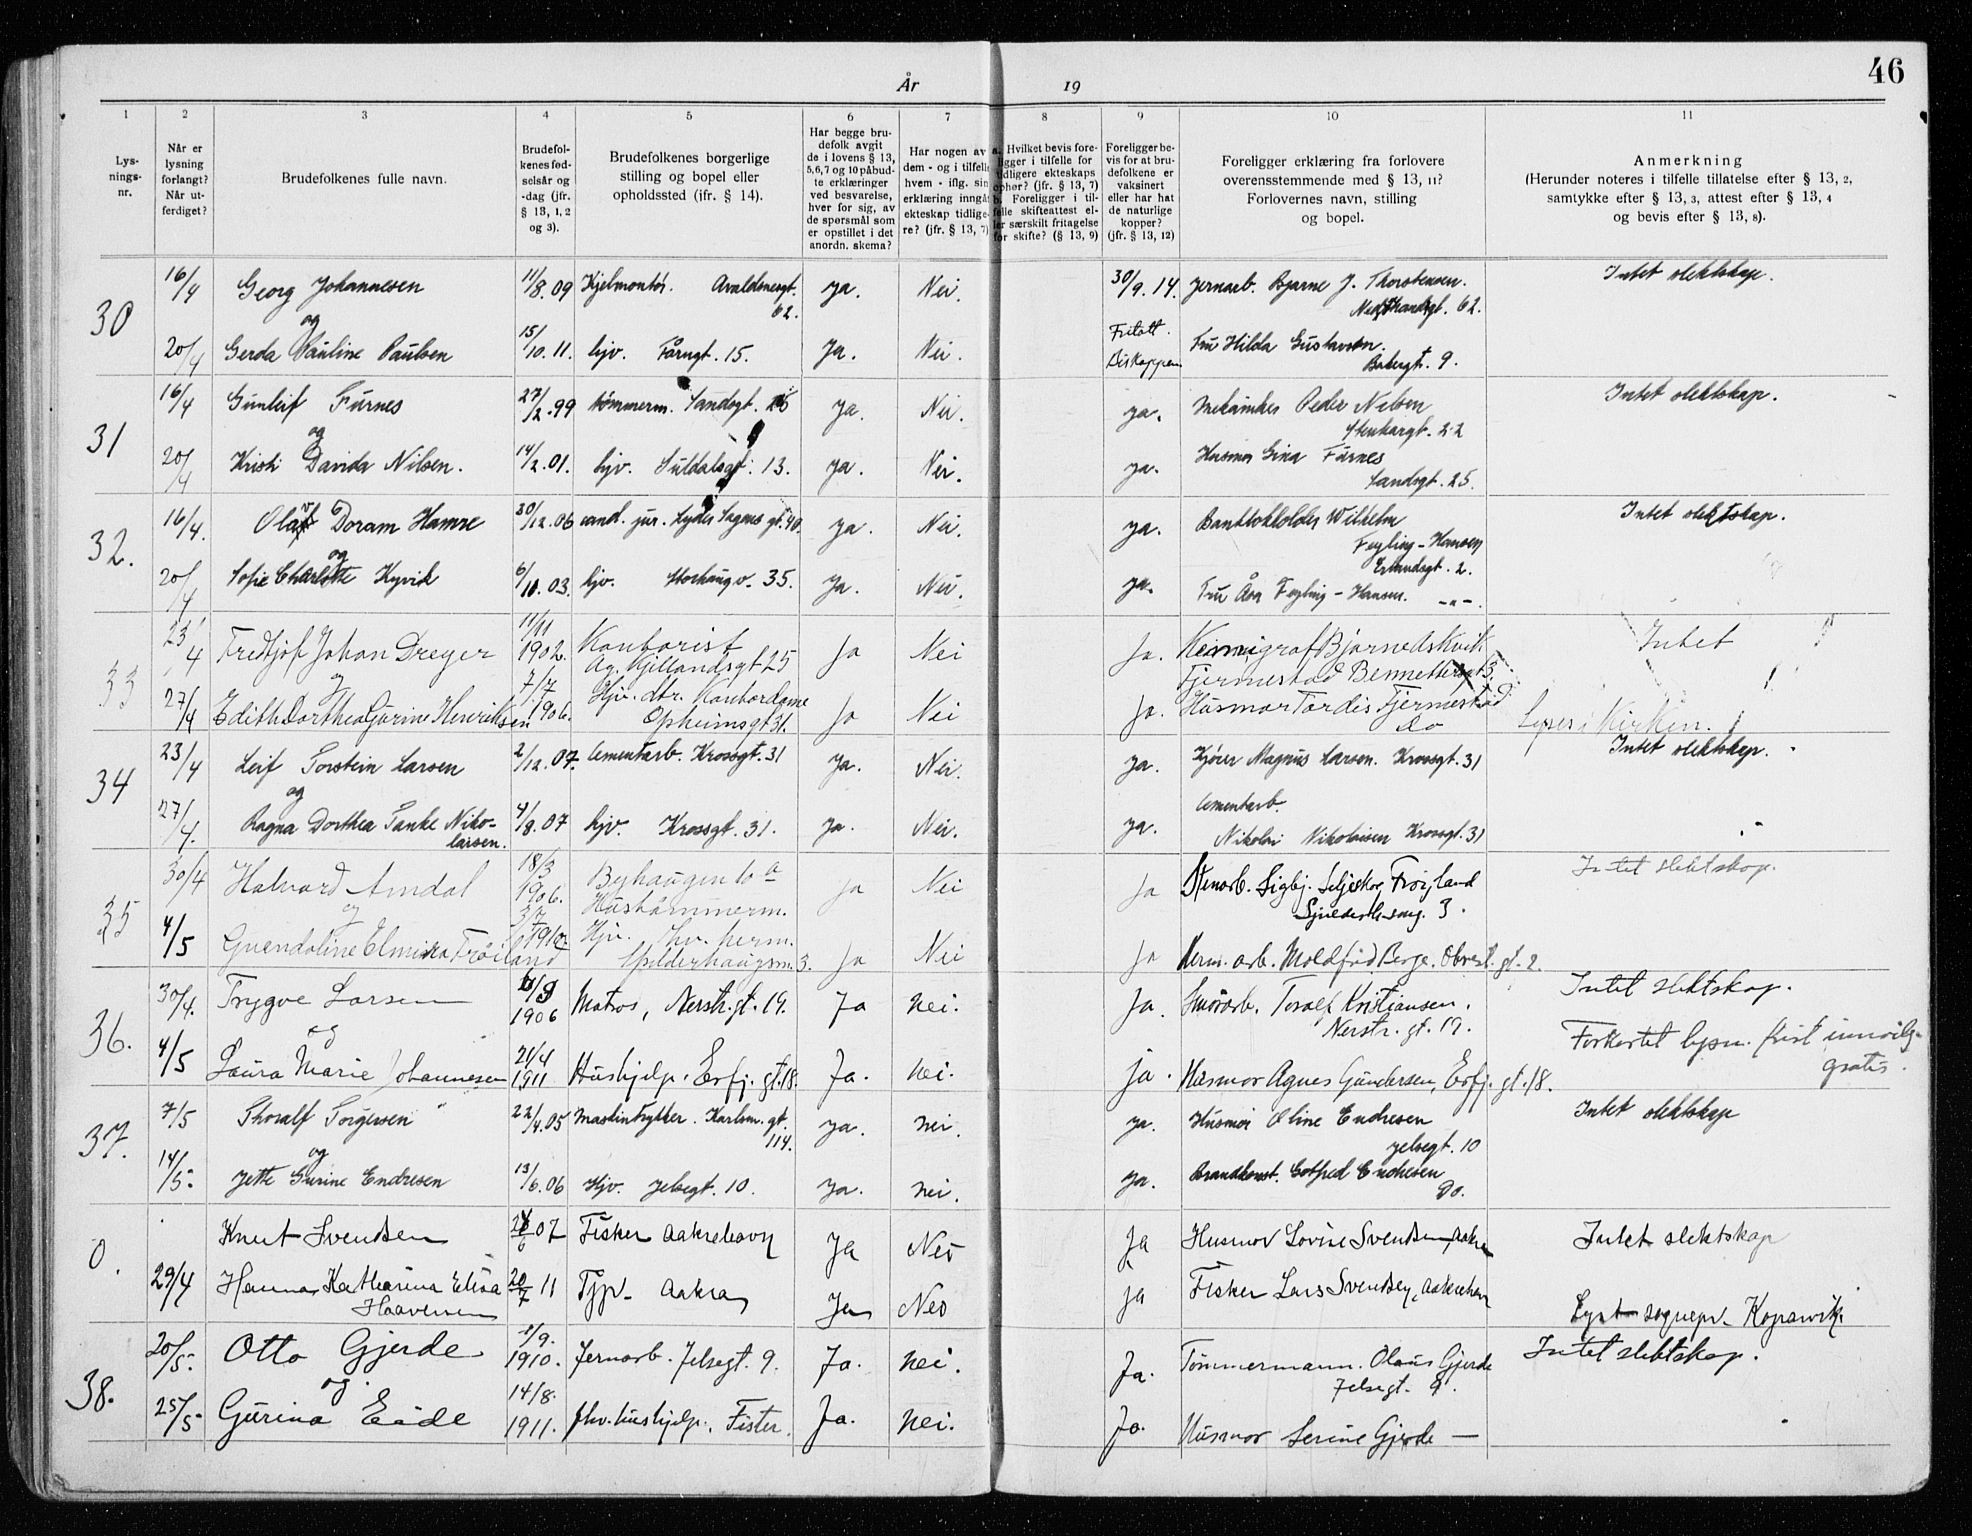 46
År 19
1 2 3 4 5 6 7 8 9 10 11
Lys-
nings-
nr.
Når er
lysning
forlangt?
Når ut-
ferdiget?
Brudefolkenes fulle navn.
Brudefol-
kenes fød-
selsår og
-dag (jfr.
§ 13, 1, 2
og 3).
Brudefolkenes borgerlige
stilling og bopel eller
opholdssted (jfr. § 14).
Har begge bru-
defolk avgit
de i lovens § 13,
5,6,7 og 10 påbud-
te erklæringer
ved besvarelse,
hver for sig, av
de spørsmål som
er opstillet i det
anordn. skema?
Har nogen av
dem - og i tilfelle
hvem - iflg. sin
erklæring inngåt
ekteskap tidlige-
re? (jfr. § 13, 7)
a. Hvilket bevis fore-
ligger i tilfelle for
tidligere ekteskaps
ophør? (jfr. § 13, 7)
b. Foreligger i til-
felle skifteattest el-
ler særskilt fritagelse
for skifte? (§ 13, 9)
Foreligger be-
vis for at bru-
defolkene er
vaksinert
eller har hat
de naturlige
kopper?
(jfr. § 13, 12)
Foreligger erklæring fra forlovere
overensstemmende med § 13, 11?
Forlovernes navn, stilling
og bopel.
Anmerkning
(Herunder noteres i tilfelle tillatelse efter § 13, 2,
samtykke efter § 13, 3, attest efter § 13, 4
og bevis efter § 13, 8).
30 16/4 Georg Johannesen 11/8.09 Kjelmontør. Avaldsnesgt. 62. ja. Nei. 30/9.14. Jernarb. Bjarne J. Thorstensen. Nedstrandsgt. 62. Intet slektskap.
og
20/4 Gerda Pauline Paulsen 15/10.11. hjv. Tårngt. 15. Ja. Nei. Fritatt. Biskoppen Fru Hilda Gustavsen. Bakergt. 9.
31 16/4 Gunleif Furnes 27/2.99 tømmerm. Sandsgt. 25 ja. Nei. ja. Mekaniker Peder Nilsen Stenkargt. 22 Intet slektskap.
og
20/4 Kristi Davida Nilsen. 14/2.01. hjv. Suldalsgt. 13. ja. Nei. ja. Husmor Gina Furnes Sandsgt. 25.
32. 16/4. Olav Doram Hamre 30/12.06 cand. jur. Lyder Sagens gt. 40. ja. Nei. ja. Bankbokholder Wilhelm Feyling-Hansen Erlandsgt. 2. Intet slektskap.
og
20/4 Sofie Charlotte Kyvik 6/10.03. hjv. Storhaugv. 35. ja. Nei. ja. Fru Åsa Feyling-Hansen. -"-.
33 23/4 Fredtjof Johan Dreyer 11/11 1902. Kontorist Ag. Kjellandsgt 25 Ja Nei Ja. Kemigraf Bjarne Fjermestad Bennettergt 3. Intet
og
27/4 Edith Dorthea Gurine Henriksen 7/7 1906. Hjv. dtr. Kontordame Opheimsgt 31. Ja Nei Ja. Husmor Tordis Fjermestad do Lyses i Kirken.
34 23/4 Leif Torstein Larsen 2/12.07. cementarb. Krossgt. 31 ja. Nei. ja. Kjører Magnus Larsen. Krossgt. 31 Intet slektskap.
og
27/4. Ragna Dorthea Tanke Niko-
laisen. 4/8.07 hjv. Krossgt. 31. ja. Nei. ja. cementarb. Nikolai Nikolaisen Krossgt. 31
35 30/4 Halvard Amdal 18/3 1906. Beyhaugen 10 a Hustømmerm. Ja Nei Ja Stenarb. Sigbj. Frøyland 3. Intet slektskap.
og
4/5 Guendoline Elmina Frøiland 3/7 1910 Hjv. Spilderhaugsm. 3. Ja Nei Ja Herm. arb. Moldfrid Berge. gt. 2.
36. 30/4. Trygve Larsen 6/9 1906 Matros, Nerstr. gt. 19. Ja nei. Ja. Toralf Kristiansen. Nerstr. gt. 19. Intet slektskap.
og
4/5 Laura Marie Johannesen 21/4 1911 Hushjelp. Erfj. gt. 18. Ja. nei. ja. Husmor Agnes Gundersen, Erfj. gt. 18. Forkortet lysn. frist innvilg. gratis.
37. 7/5 Thoralf Torgersen 22/4.05 Maskintrykker. Karlsm. gt. 114. ja. nei. ja. Husmor Oline Endresen Jelsegt. 10 Intet slektskap
og
14/5. Jette Gurine Endresen 13/6.06 Hjv. Jelsegt. 10. ja. nei. ja. Brandkonst. Gotfred Endresen Do.
0. Knut Svendsen 07 Fisker Aakrehavn Ja Nei Ja Husmor Lovise Svendsen, Aakra Intet slektskap
29/4 Hanna Katharina Elisa Haaversen 20/7 11 Tjp. Aakra Ja Nei Ja Fisker Lars Svendsen, Aakrehavn Lyst sognepr. Kopervik.
38. 20/5. Otto Gjerde 1/9. 1910. Jernarb. Jelsegt. 9. Ja. nei. Ja. Tømmermann. Olaus Gjerde Jelsegt. 9. Intet slektskap.
og
25/5. Gurina Eide 14/8. 1911. fhv. hushjelp. Fister. Ja. nei. Ja. Husmor Serine Gjerde —